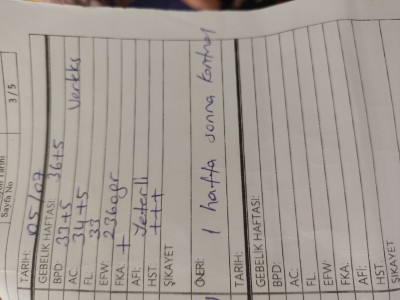 Sayfa No 3/5
TARİH: 05/07
GEBELİK HAFTASI: 36+5
BPD: 33+5 Verteks
AC. 34+5
FL. 33
EFW: 2360gr
FKA. +
AFI: Yeterli
HST +++
ŞİKAYET
ÖNERİ: 1 hafta sonra kontrol
TARİH:
GEBELİK HAFTASI:
BPD:
AC.
FL.
EFW:
FKA.
AFI:
HST
ŞİKAYET